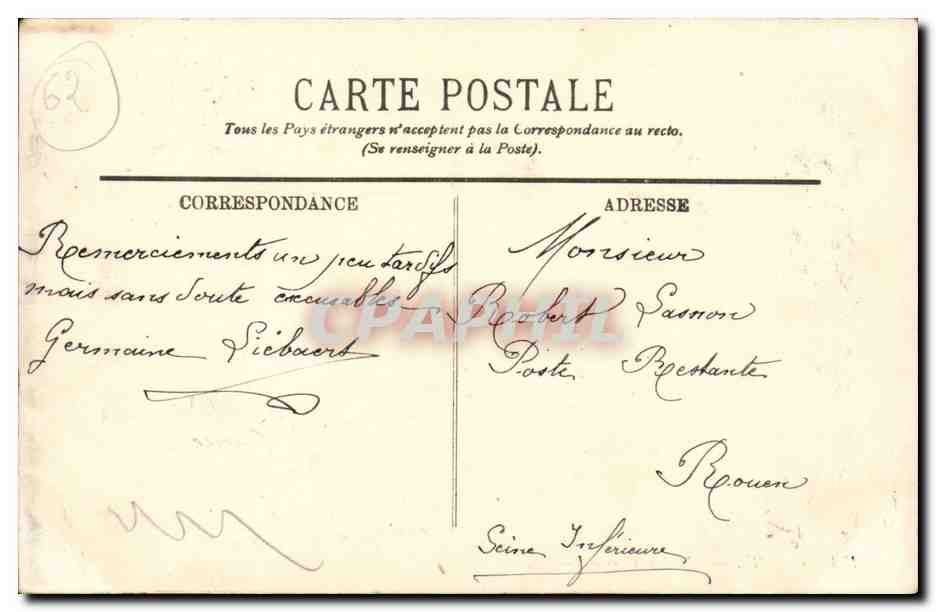 62
CARTE POSTALE
Tous les Pays étrangers n'acceptent pas la Correspondance au recto.
(Se renseigner à la Poste).
CORRESPONDANCE
Remerciements un peu tardifs
mais sans doute excusables
Germaine Liebaert
ADRESSE
Monsieur
Robert Lasnon
Poste Restante
Rouen
Seine Inférieure
CPAPHIL